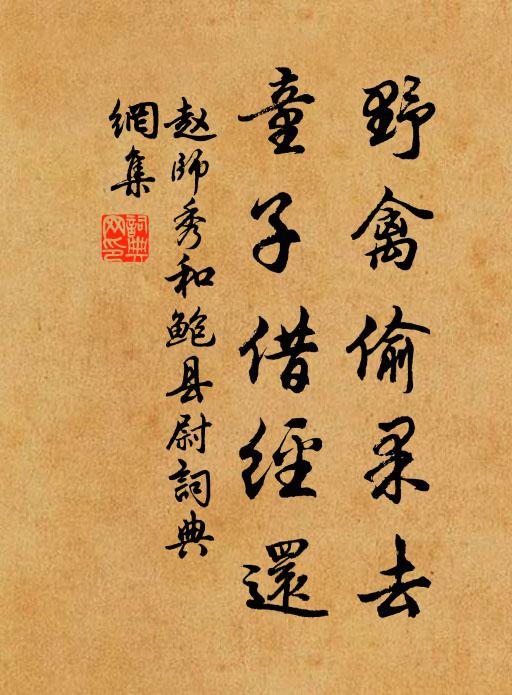 野禽偷果去
童子借經還
赵師秀和鲍县尉詞典
網集
詞典
网印